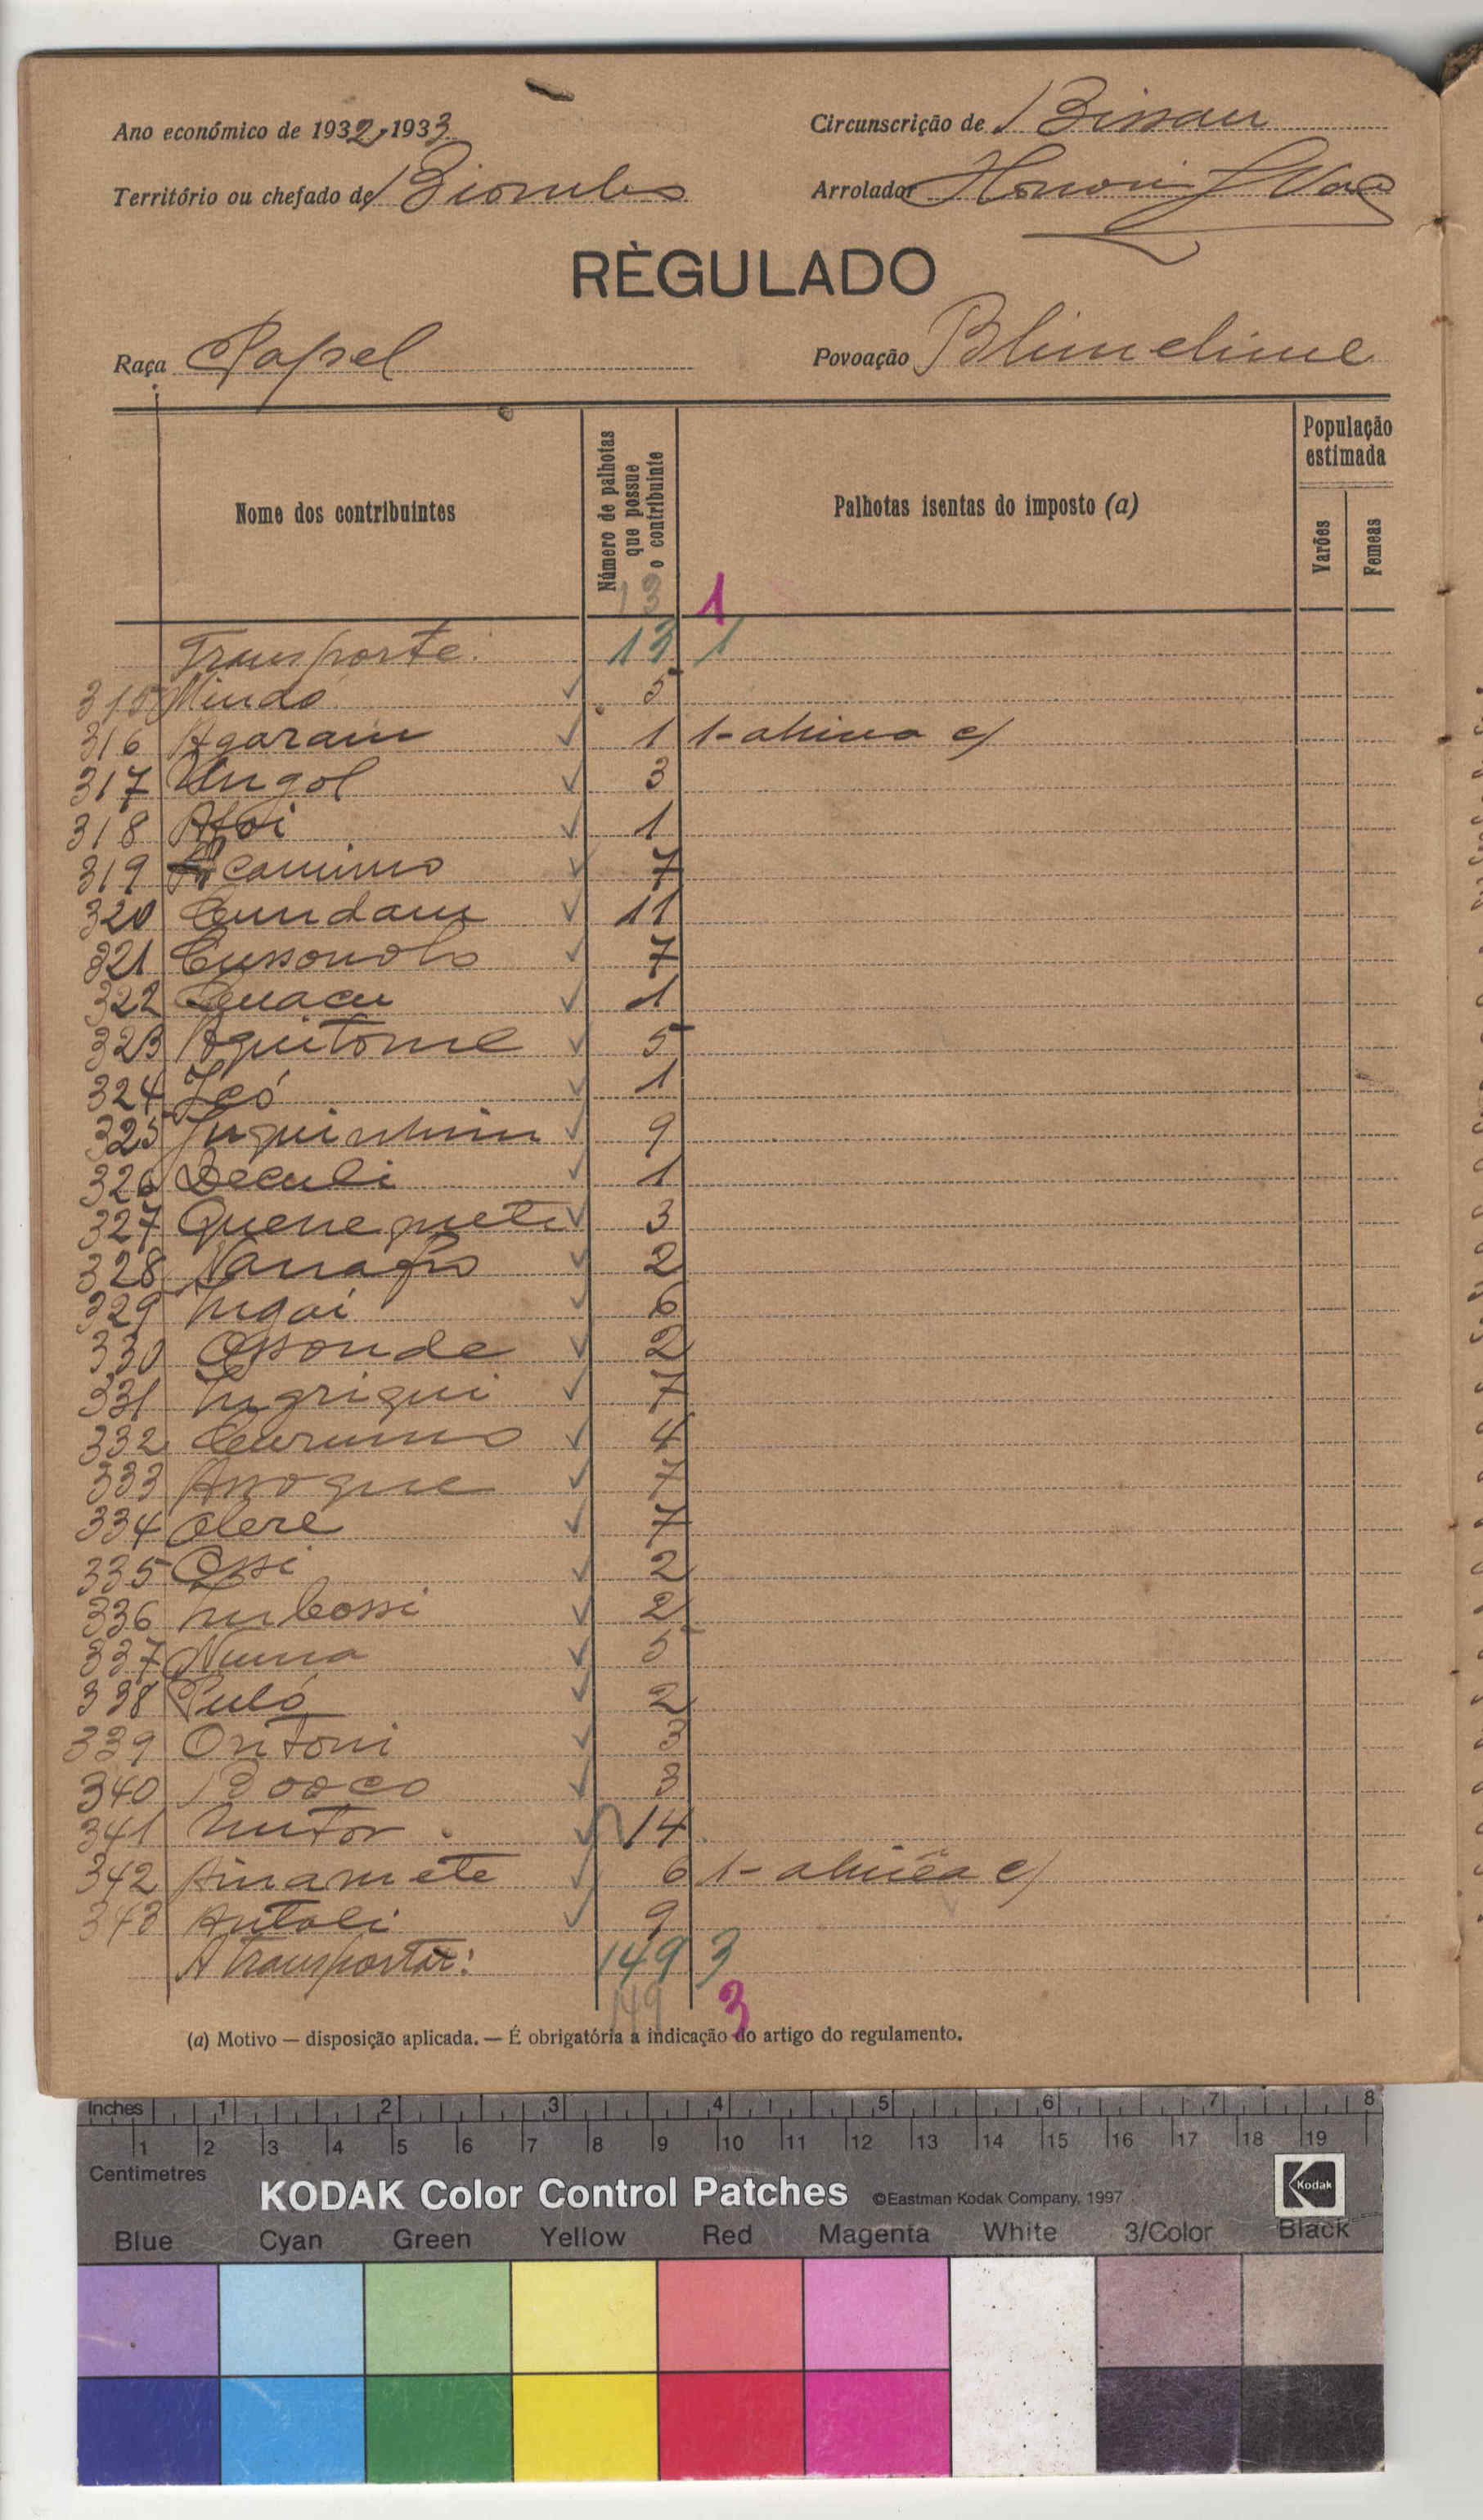 Ano económico de 1932, 1933
Circunscrição de Bissau
Território ou chefado de Biombo
Arrolador
RÈGULADO
Raça Papel
Povoação Blimelime
Nome dos contribuintes
Número de palhotas que possue o contribuinte
Palhotas isentas do imposto (a)
População estimada
Varões
Femeas
13 1
Transporte: 13 1
315 Mindó 5
316 Agarain 1 1-alinea c)
317 Ungol 3
318 1
319 7
320 Cundam 11
321 7
322 Quacu 1
323 Aquitome 5
324 1
325 9
326 Deculi 1
327 Quenemete 3
328 2
329 Ungai 6
330 Ossonde 2
331 Ungriqui 7
332 4
333 7
334 Olere 7
335 Ossi 2
336 2
337 5
338 Puló 2
339 Ontoni 3
340 Booco 3
341 14
342 Ainamete 6 1-alinea c)
343 Antoli 9
A transportar: 149 3
149 3
(a) Motivo — disposição aplicada. — É obrigatória a indicação do artigo do regulamento.
Inches 1 2 3 4 5 6 7 8
1 2 3 4 5 6 7 8 9 10 11 12 13 14 15 16 17 18 19
Centimetres
KODAK Color Control Patches ©Eastman Kodak Company, 1997 Kodak
Blue Cyan Green Yellow Red Magenta White 3/Color Black